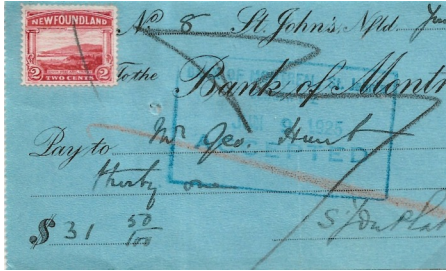 NEWFOUNDLAND
2 TWO CENTS 2
No. 8 St. John's, Nfld
To the Bank of Montr
JAN 9 1925
ACCEPTED
Pay to Mr Geo. Hunt
thirty one
$ 31 50/100